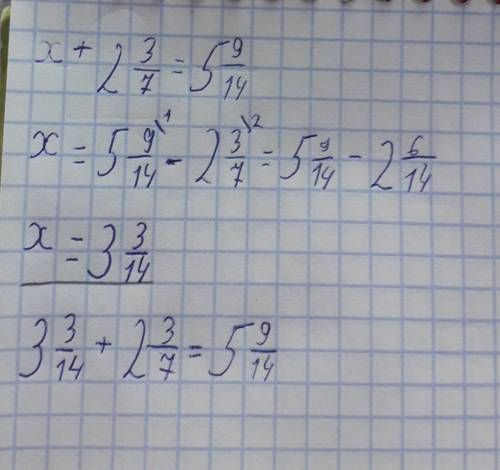 x + 2 3/7 = 5 9/14
x = 5 9/14 \1 - 2 3/7 \2 = 5 9/14 - 2 6/14
x = 3 3/14
3 3/14 + 2 3/7 = 5 9/14